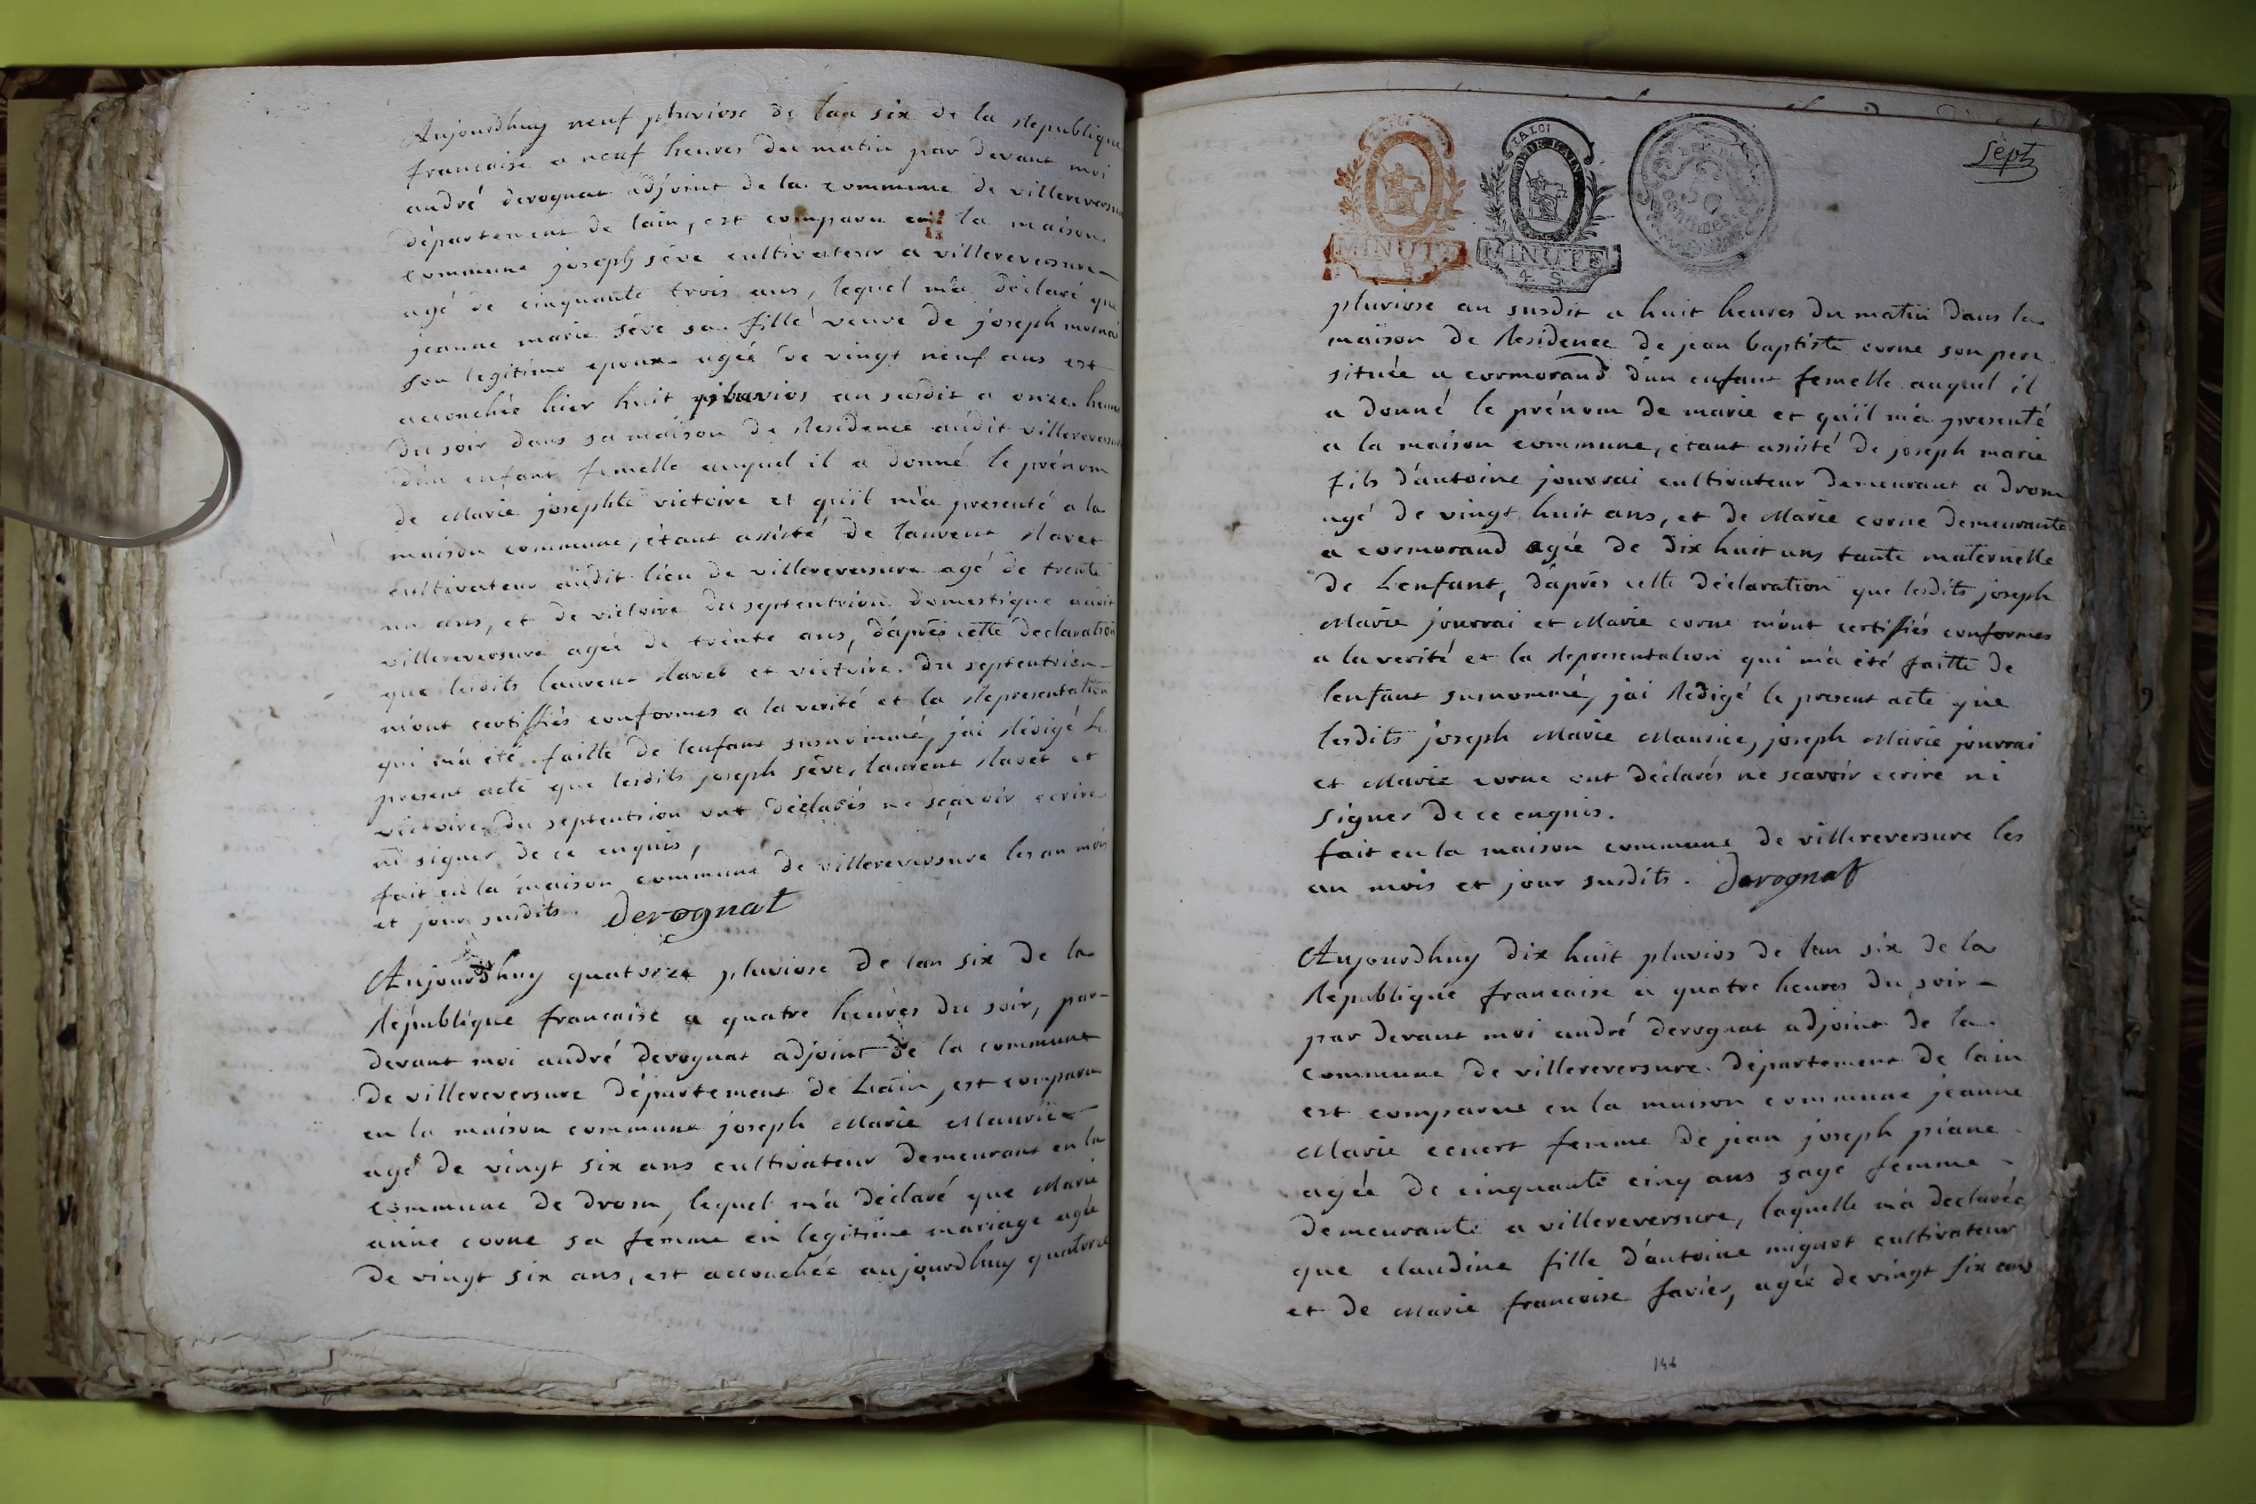 Aujourdhuy neuf pluviose de lan six de la Republique
francaise a neuf heures du matin par devant moi
andré derognat adjoint de la commune de villereversure
département de lain, est comparu en la maison
commune joseph sève cultivateur a villereversure
agé de cinquante trois ans, lequel m'a déclaré que
jeanne marie sève sa fille veuve de joseph
son legitime epoux agée de vingt neuf ans est
accouchée hier huit pluvios an susdit a onze heures
du soir dans sa maison de Residence audit villereversure
d'un enfant femelle auquel il a donné le prénom
de Marie josephte victoire et qu'il m'a presenté a la
maison commune, étant assisté de laurent Ravet
cultivateur audit lieu de villereversure agé de trente
un ans, et de victoire du septentrion domestique audit
villereversure agée de trente ans, d'après cette declaration
que lesdits laurent Ravet et victoire du septentrion
m'ont certiffiés conformes a la verité et la Representation
qui m'a été faitte de lenfant susnommé, j'ai Rédigé le
present acte que lesdits joseph sève, laurent Ravet et
victoire du septentrion ont déclarés ne sçavoir ecrire
ni signer de ce enquis,
fait en la maison commune de villereversure les an mois
et jour susdits. Derognat
Aujourdhuy quatorze pluviose de lan six de la
République francaise a quatre heures du soir, par
devant moi andré derognat adjoint de la commune
de villereversure département de Lain, est comparu
en la maison commune joseph Marie Maurice
agé de vingt six ans cultivateur demeurant en la
commune de drom, lequel m'a déclaré que Marie
anne corne sa femme en legitime mariage agée
de vingt six ans, est accouchée aujourdhuy quatorze
Sept
LA LOI
MINUTE
LA LOI
MINUTE
4 S
pluviose an susdit a huit heures du matin dans la
maison de Residence de jean baptiste corne son pere
située a cormorand d'un enfant femelle auquel il
a donné le prénom de marie et qu'il m'a presenté
a la maison commune, étant assisté de joseph marie
fils d'antoine jouvrai cultivateur demeurant a drom
agé de vingt huit ans, et de Marie corne demeurante
a cormorand agée de dix huit ans tante maternelle
de Lenfant, d'après cette déclaration que lesdits joseph
Marie jouvrai et Marie corne m'ont certiffiés conformes
a la verité et la Representation qui m'a été faitte de
lenfant susnommé, j'ai Redigé le present acte que
lesdits joseph Marie Maurice, joseph Marie jouvrai
et Marie corne ont déclarés ne scavoir ecrire ni
signer de ce enquis.
fait en la maison commune de villereversure les
an mois et jour susdits. Derognat
Aujourdhuy dix huit pluvios de lan six de la
Republique francaise a quatre heures du soir
par devant moi andré derognat adjoint de la
commune de villereversure département de lain
est comparue en la maison commune jeanne
Marie femme de jean joseph piane
agée de cinquante cinq ans sage femme
demeurante a villereversure, laquelle m'a declarée
que claudine fille d'antoine mignot cultivateur
et de Marie francoise favier, agée de vingt six ans
146